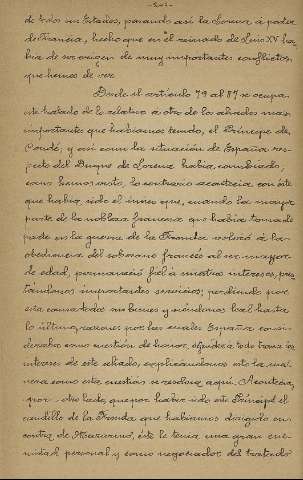 -201-
de todos sus Estados, pasando así la Lorena á poder
de Francia, hecho que en el reinado de Luis XV ha-
bía de ser origen de muy importantes conflictos,
que hemos de ver.
Desde el artículo 79 al 87 se ocupa
este tratado de lo relativo a otro de los aliados mas
importantes que habíamos tenido, el Príncipe de
Condé, y así como la situación de España res-
pecto del Duque de Lorena había cambiado,
como hemos visto, lo contrario acontecía con éste
que había sido el único que, cuando la mayor
parte de la nobleza francesa que había tomado
parte en la guerra de la Fronda volvió á la
obediencia del soberano francés al ser mayor
de edad, permaneció fiel á nuestros intereses, pres-
tándonos importantes servicios, perdiendo por
esa causa todos sus bienes y siéndonos leal hasta
lo último, razones por las cuales España consi-
deraba como cuestión de honor, el poder á todo trance los
intereses de este aliado, explicándonos esto la ma-
nera como esta cuestión se resolvió aquí. Acontecía,
por otro lado, que por haber sido este Príncipe el
caudillo de la Fronda que habíamos dirigido en
contra de Mazarino, éste le tenía una gran ene-
mistad personal y como negociador del tratado